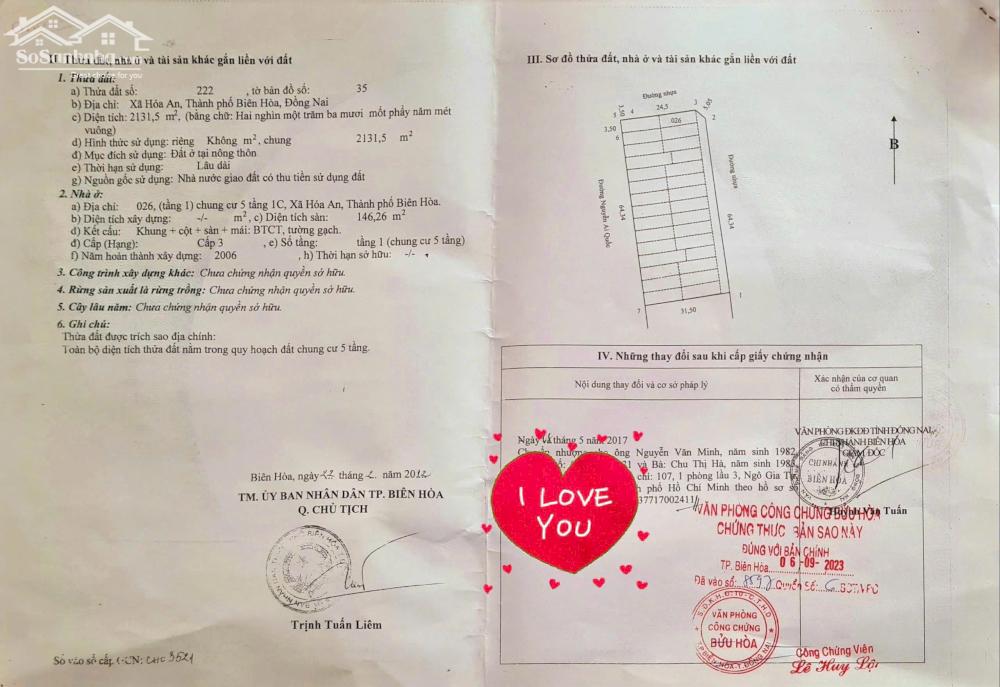 SoSanhnha
Best choice for you
II. Thửa đất, nhà ở và tài sản khác gắn liền với đất
1. Thửa đất:
a) Thửa đất số: 222 , tờ bản đồ số: 35
b) Địa chỉ: Xã Hóa An, Thành phố Biên Hòa, Đồng Nai
c) Diện tích: 2131,5 m², (bằng chữ: Hai nghìn một trăm ba mươi mốt phẩy năm mét
vuông)
d) Hình thức sử dụng: riêng Không m², chung 2131,5 m²
đ) Mục đích sử dụng: Đất ở tại nông thôn
e) Thời hạn sử dụng: Lâu dài
g) Nguồn gốc sử dụng: Nhà nước giao đất có thu tiền sử dụng đất
2. Nhà ở:
a) Địa chỉ: 026, (tầng 1) chung cư 5 tầng 1C, Xã Hóa An, Thành phố Biên Hòa.
b) Diện tích xây dựng: -/- m², c) Diện tích sàn: 146,26 m²
d) Kết cấu: Khung + cột + sàn + mái: BTCT, tường gạch.
đ) Cấp (Hạng): Cấp 3 , e) Số tầng: tầng 1 (chung cư 5 tầng)
f) Năm hoàn thành xây dựng: 2006 , h) Thời hạn sở hữu: -/-
3. Công trình xây dựng khác: Chưa chứng nhận quyền sở hữu.
4. Rừng sản xuất là rừng trồng: Chưa chứng nhận quyền sở hữu.
5. Cây lâu năm: Chưa chứng nhận quyền sở hữu.
6. Ghi chú:
Thửa đất được trích sao địa chính:
Toàn bộ diện tích thửa đất nằm trong quy hoạch đất chung cư 5 tầng.
Biên Hòa, ngày 27 tháng 2 năm 2012
TM. ỦY BAN NHÂN DÂN TP. BIÊN HÒA
Q. CHỦ TỊCH
Trịnh Tuấn Liêm
Số vào sổ cấp GCN: CHC 3521
III. Sơ đồ thửa đất, nhà ở và tài sản khác gắn liền với đất
Đường nhựa
3,50 4 24,5 3 5,05
5 026 2
3,50
6
B
Đường nhựa
Đường Nguyễn Ái Quốc
64,34
64,34
7 31,50 1
IV. Những thay đổi sau khi cấp giấy chứng nhận
Nội dung thay đổi và cơ sở pháp lý
Xác nhận của cơ quan
có thẩm quyền
VĂN PHÒNG ĐKĐĐ TỈNH ĐỒNG NAI
CHI NHÁNH BIÊN HÒA
GIÁM ĐỐC
CHI NHÁNH
BIÊN HÒA
Huỳnh Văn Tuấn
tháng 5 năm 2017
ông Nguyễn Văn Minh, sinh năm 1982,
và Bà: Chu Thị Hà, năm sinh 1983
chỉ: 107, 1 phòng lầu 3, Ngô Gia Tự,
phố Hồ Chí Minh theo hồ sơ số
37717002411
I LOVE
YOU
VĂN PHÒNG CÔNG CHỨNG BỬU HÒA
CHỨNG THỰC BẢN SAO NÀY
ĐÚNG VỚI BẢN CHÍNH
TP. Biên Hòa, 06-09-2023
Đã vào sổ: Quyển Số:
S.Đ.K.H.Đ
VĂN PHÒNG
CÔNG CHỨNG
BỬU HÒA
TP BIÊN HÒA-T. ĐỒNG NAI
Công Chứng Viên
Lê Huy Lội